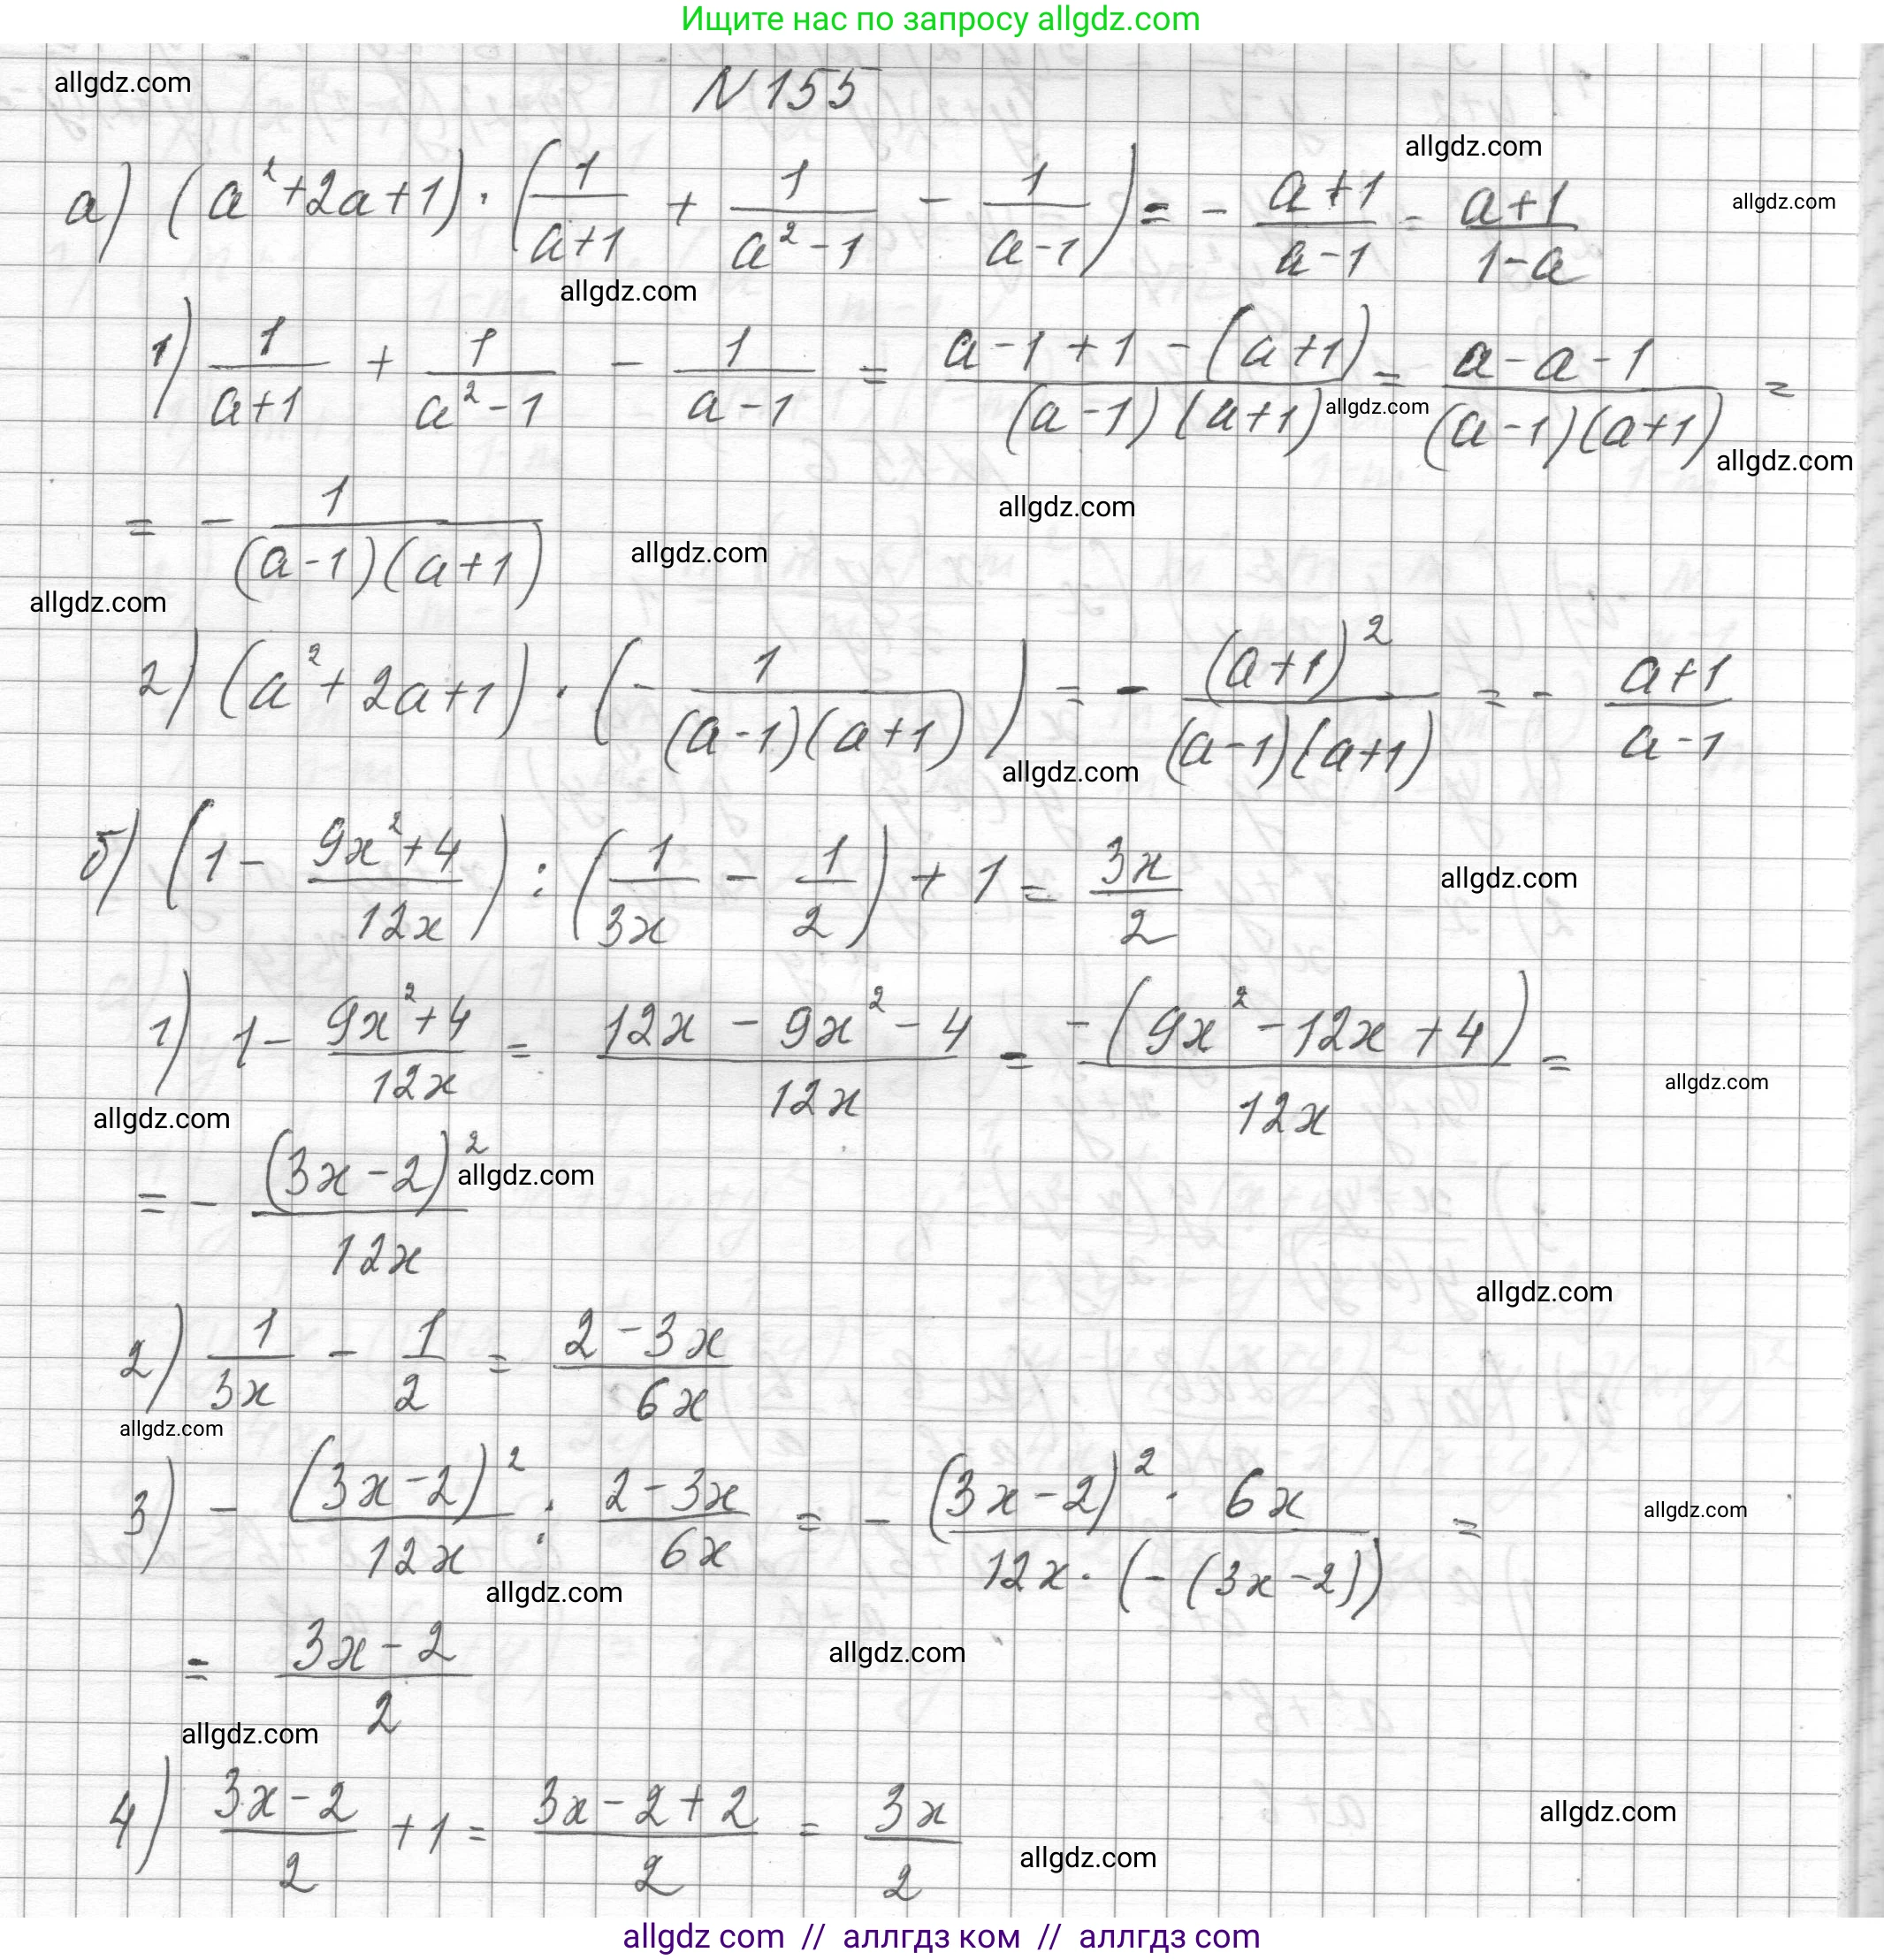 Ищите нас по запросу allgdz.com
allgdz.com
N 155
allgdz.com
а) (a²+2a+1) · (1/(a+1) + 1/(a²-1) - 1/(a-1)) = - (a+1)/(a-1) = (a+1)/(1-a)
allgdz.com
allgdz.com
1) 1/(a+1) + 1/(a²-1) - 1/(a-1) = (a-1+1-(a+1))/((a-1)(a+1)) = (a-a-1)/((a-1)(a+1)) =
allgdz.com
allgdz.com
allgdz.com
= - 1/((a-1)(a+1))
allgdz.com
allgdz.com
2) (a²+2a+1) · (- 1/((a-1)(a+1))) = - (a+1)²/((a-1)(a+1)) = - (a+1)/(a-1)
allgdz.com
б) (1 - (9x²+4)/12x) : (1/3x - 1/2) + 1 = 3x/2
allgdz.com
1) 1 - (9x²+4)/12x = (12x - 9x² - 4)/12x = -(9x² - 12x + 4)/12x =
allgdz.com
allgdz.com
= - (3x-2)²/12x
allgdz.com
allgdz.com
2) 1/3x - 1/2 = (2-3x)/6x
allgdz.com
3) - (3x-2)²/12x : (2-3x)/6x = - ((3x-2)² · 6x)/(12x · (-(3x-2))) =
allgdz.com
allgdz.com
= (3x-2)/2
allgdz.com
allgdz.com
4) (3x-2)/2 + 1 = (3x-2+2)/2 = 3x/2
allgdz.com
allgdz.com
allgdz.com // аллгдз ком // аллгдз com